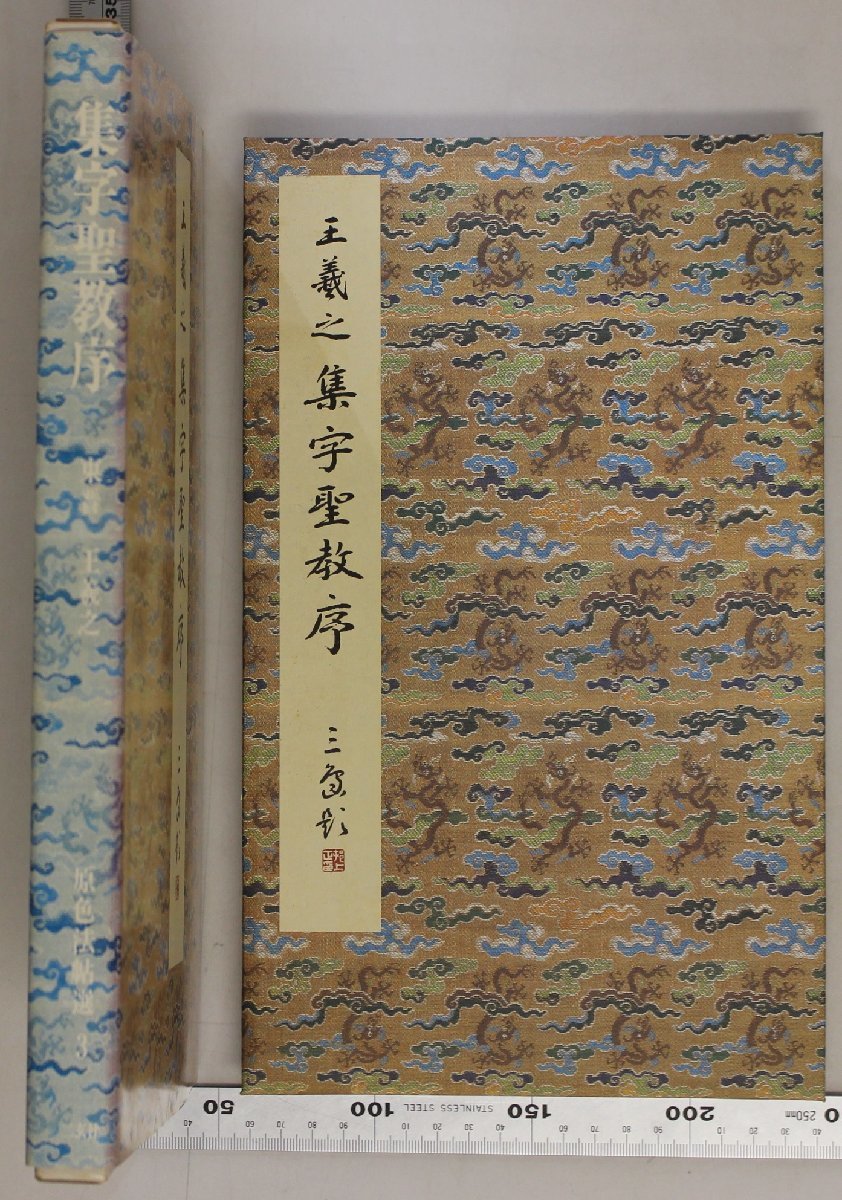 集字聖教序
東晋 王羲之
原色法帖選 3
王羲之集字聖教序
王羲之集字聖教序
三鳥題
50
100
150
200
STAINLESS STEEL
250mm
0
35